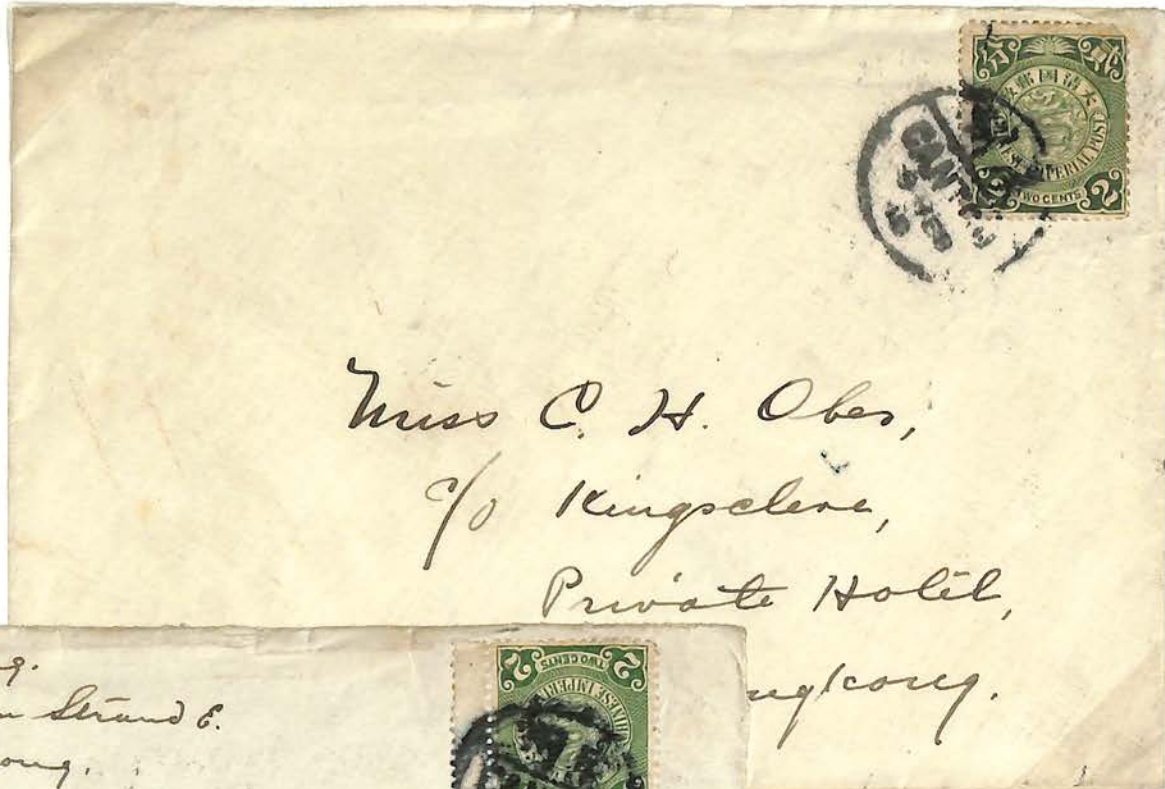 大清國郵政
CHINESE IMPERIAL POST
2 TWO CENTS 2
CANTON
Miss C. H. Ober,
c/o Kingsclere,
Private Hotel,
ngkong.
g.
n Strand E.
ong.
2 TWO CENTS 2
CHINESE IMPERI